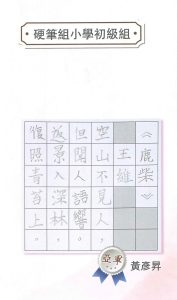 硬筆組小學初級組
《鹿柴》
王維
空山不見人，
但聞人語響。
返景入深林，
復照青苔上。
亞軍
黃彥昇